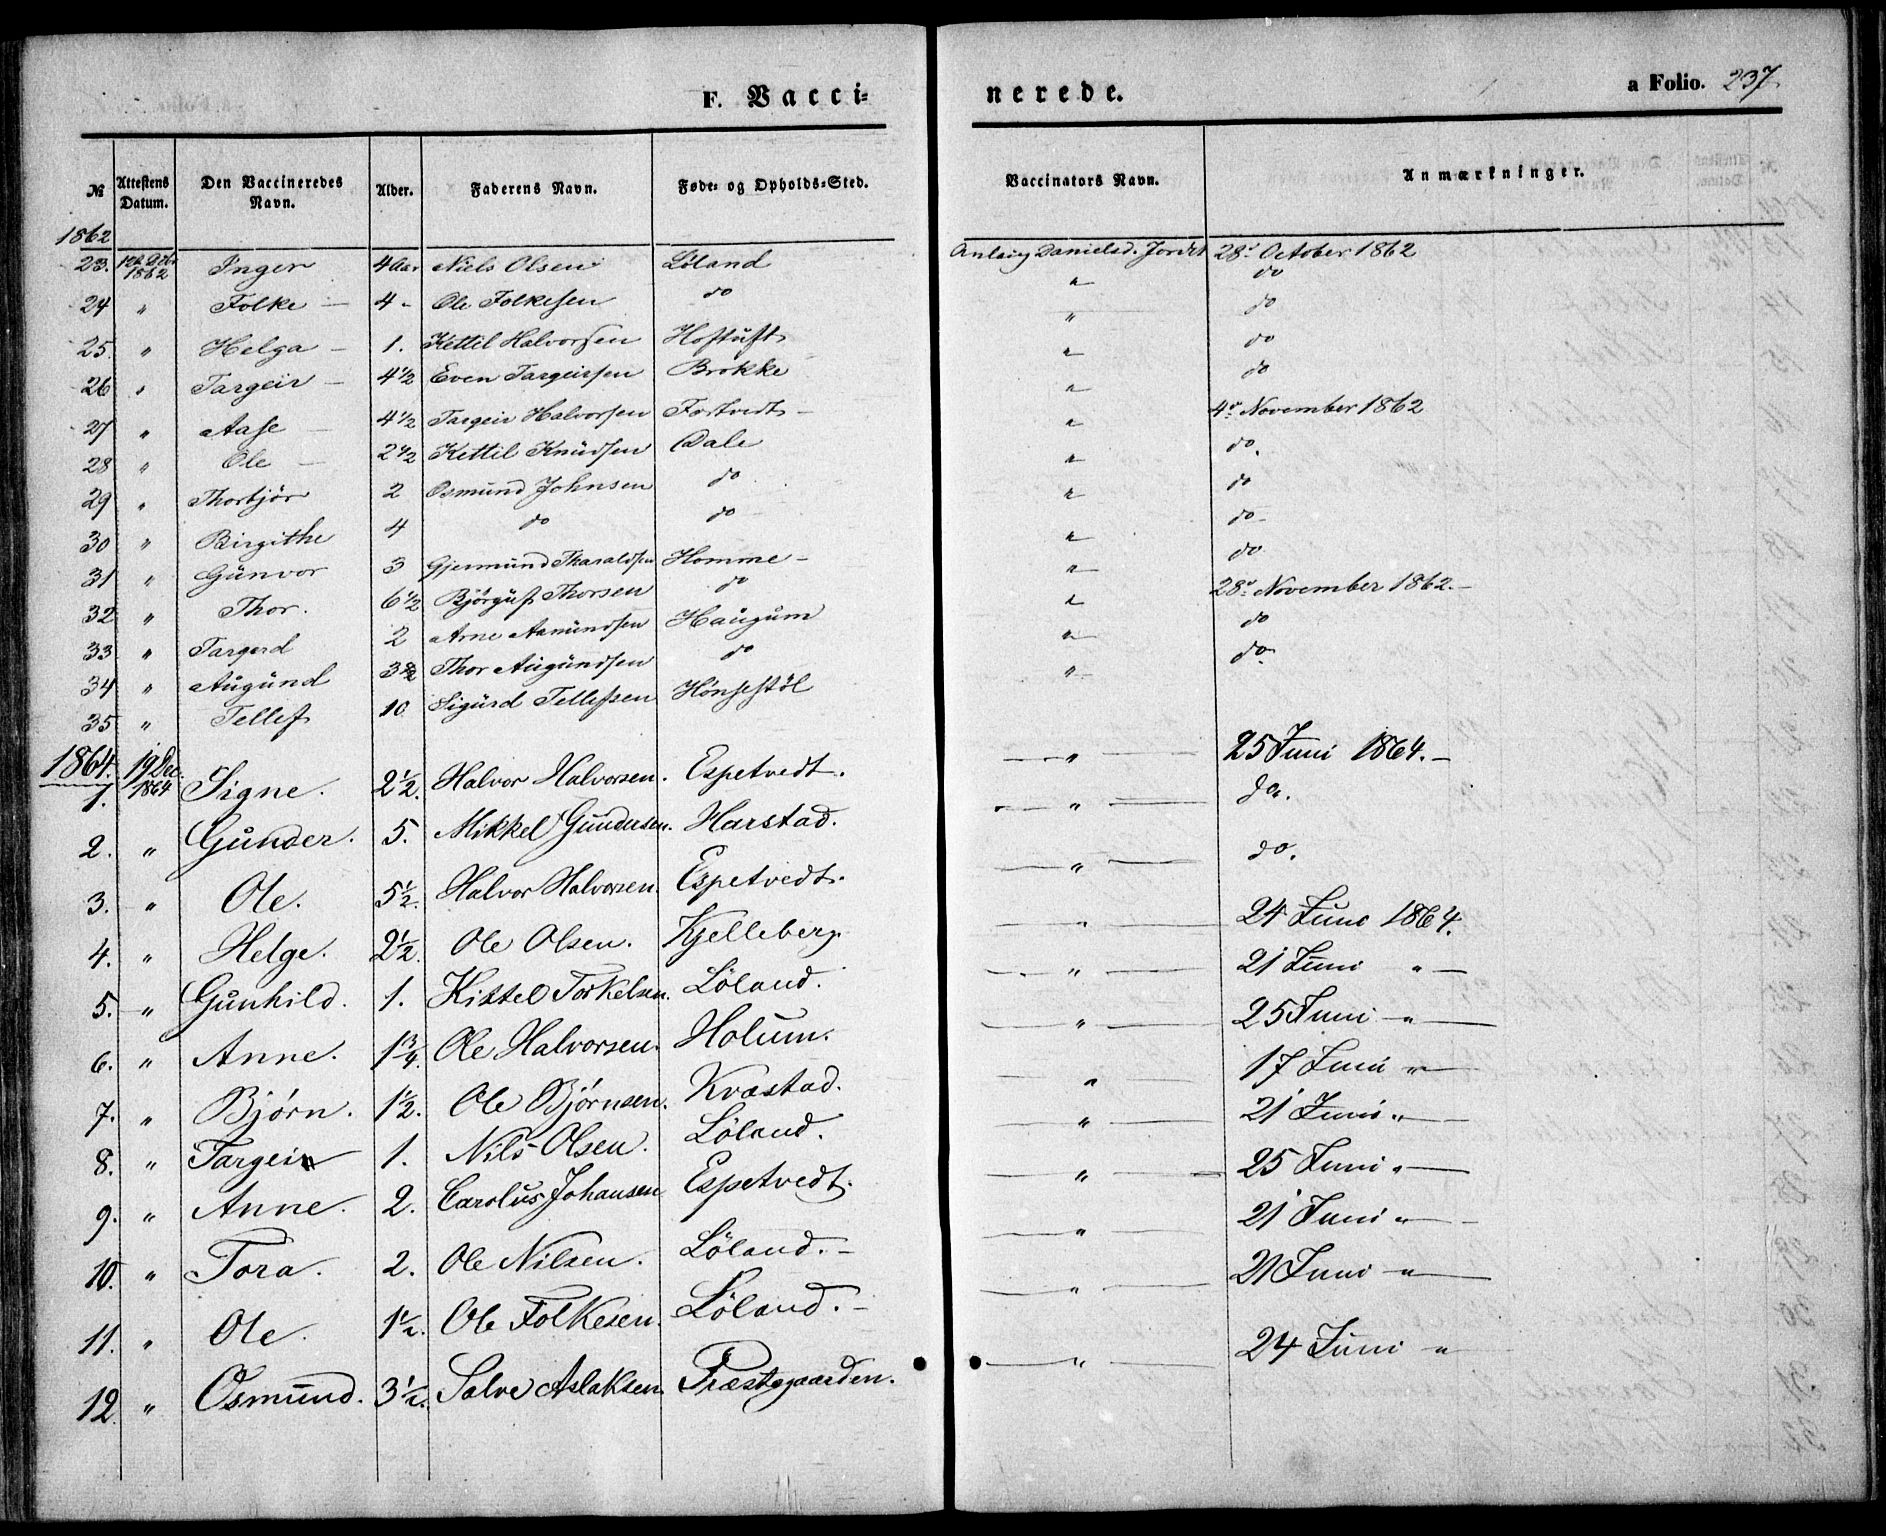 F. Vacci= nerede. a Folio. 237
№ Attestens Datum. Den Vaccineredes Navn. Alder. Faderens Navn. Føde= og Opholds=Sted. Vaccinators Navn. Anmærkninger.
1862
23. 1862 Inger 4 Aar Niels Olsen Løland Danielsd. Jordet 28d October 1862
24 " Folke — 4 - Ole Folkesen do " do
25. " Helga — 1. Kettil Halvorsen Hoftuft " do
26 " Targeir — 4 1/2 Even Targeirsen Brokke " do
27 " Aase — 4 1/2 Targeir Halvorsen — " 4d November 1862
28 " Ole — 2 1/2 Kettil Knudsen Dale " do.
29 " Thorbjør 2 Osmund Johnsen do " do
30 " Birgithe 4 do do " do
31 " Gunvor 3 Gjermund Tharaldsen Homme — " do
32 " Thor. 6 1/2 Bjørguf Thorsen do " 28d November 1862.—
33 " Targerd 2 Arne Asmundsen Haugum " do
34 " Augund Thor Augundsen do " do
35 " Tellef 10 Sigurd Tellefsen Hønsestøl
1864. 19 Dec. 1864
1. Signe. 2 1/2. Halvor Halvorsen. Espetvedt. " 25 Juni 1864.—
2. " Gunder. 5. Mikkel Gundersen. Harstad. " do.
3. " Ole. 5 1/2. Halvor Halvorsen. Espetvedt. " do.
4. " Helge. 2 1/2. Ole Olsen. Kjelleberg. " 24 Juni 1864.
5. " Gunhild. 1. Kittel Torkelsen. Løland. " 21 Juni " —
6. " Anne. 1 3/4. Ole Halvorsen. Holum. " 25 Juni " —
7. " Bjørn. 1 1/2. Ole Bjørnsen. Kvæstad. " 17 Juni " —
8. " Targeir 1. Nils Olsen. Løland. " 21 Juni " —
9. " Anne. 2. Carolus Johansen. Espetvedt. " 25 Juni " —
10. " Tora. 2. Ole Nilsen. Løland. — " 21 Juni " —
11. " Ole. 1 1/2. Ole Folkesen. Løland. — " 21 Juni " —
12. " Osmund. 3 1/2. Salve Aslaksen. Præstegaarden. " 24 Juni "